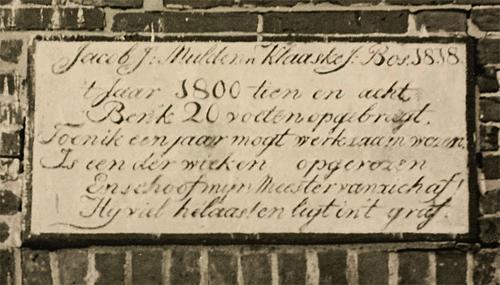 Jacob J: Mulder n Klaaske J: Bos. 1818.
't Jaar 1800 tien en acht,
Ben k 20 voeten opgebragt.
Toen ik een jaar mogt werksaam wezen
Is een der wieken opgerezen
En schoof myn Meester van zich af!
Hy viel helaas en ligt in't graf.